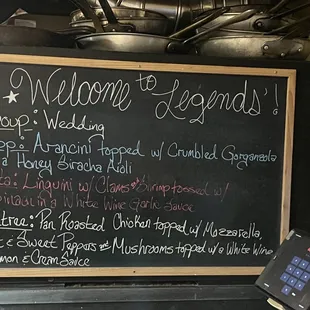 Welcome to Legends'!
oup: Wedding
pp: Arancini topped w/ Crumbled Gorganzola
a Honey Siracha Aioli
ta: Linguini w/ Clams & Shrimp tossed w/
in a White Wine Garlic Sauce
tree: Pan Roasted Chicken topped w/ Mozzarella,
& Sweet Peppers & Mushrooms topped w/ a White Wine
mon & Cream Sauce